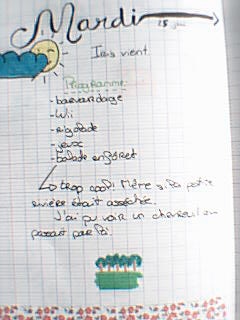 Mardi
Iris vient.
Programme:
- bavardage
- Wii
- rigolade
- jeux
- balade en forêt
trop cool! Même si la petite
rivière était asséchée.
J'ai pu voir un chevreuil en
passant par là.